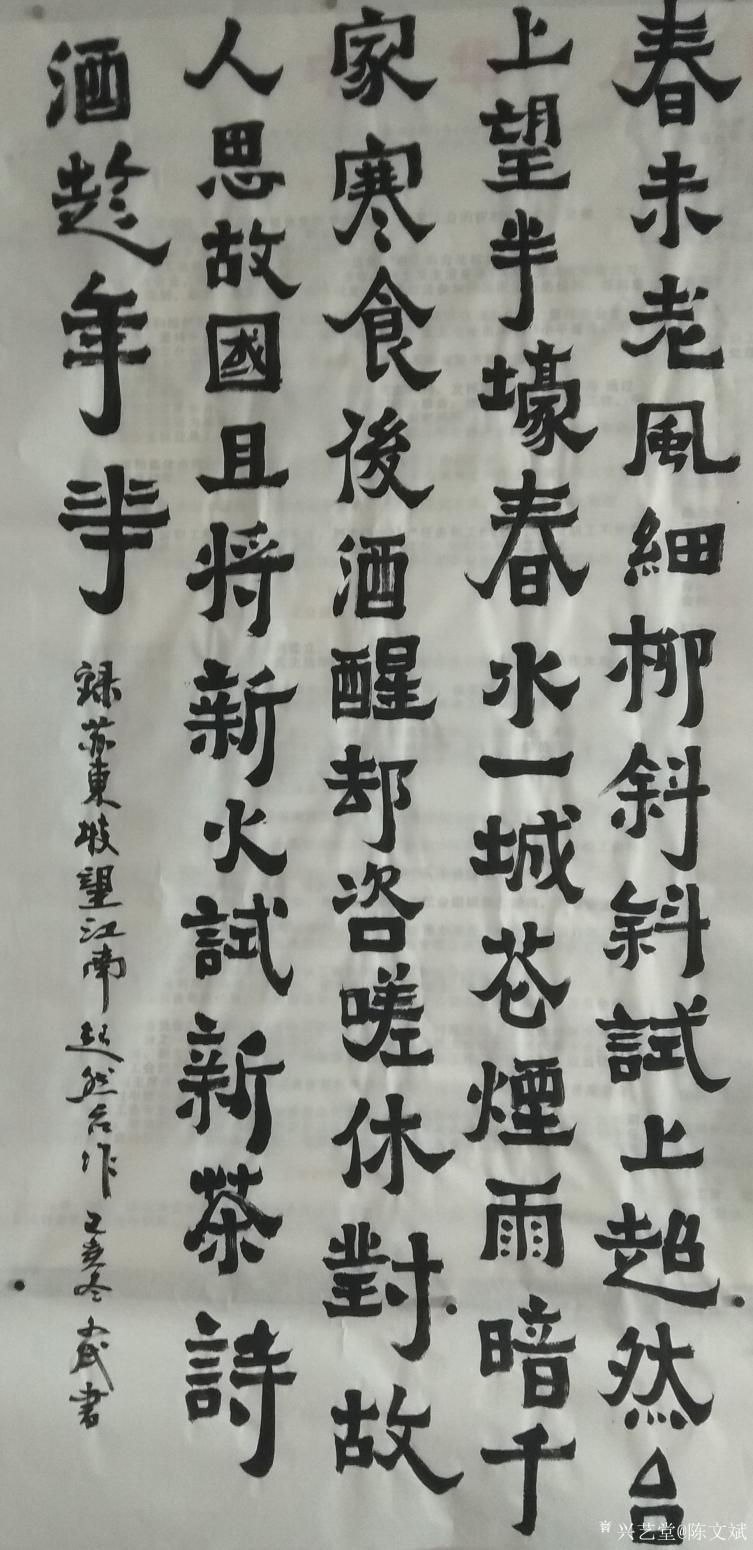 春未老風細柳斜斜試上超然台
上望半壕春水一城花煙雨暗千
家寒食後酒醒却咨嗟休對故
人思故國且将新火試新茶詩
酒趁年華
録苏東坡望江南超然台作 己亥冬 書
兴艺堂@陈文斌